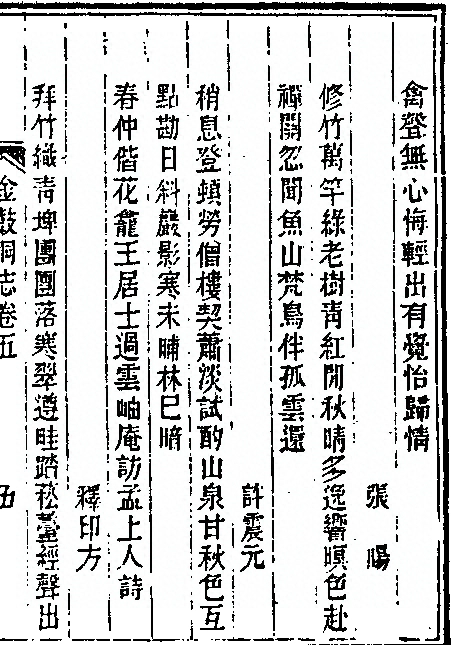 禽聲無心悔輕出有覺怡歸情
張暘
修竹萬竿綠老樹青紅閒秋晴多逸響暝色赴
禪關忽聞魚山梵鳥伴孤雲還
許震元
稍息登頓勞僧樓契蕭淡試酌山泉甘秋色互
點勘日斜巖影寒未晡林已暗
春仲偕花龕王居士過雲岫庵訪孟上人詩
釋印方
拜竹織青埤團團落寒翠遵畦踏菘薹經聲出
金鼓洞志卷五 五